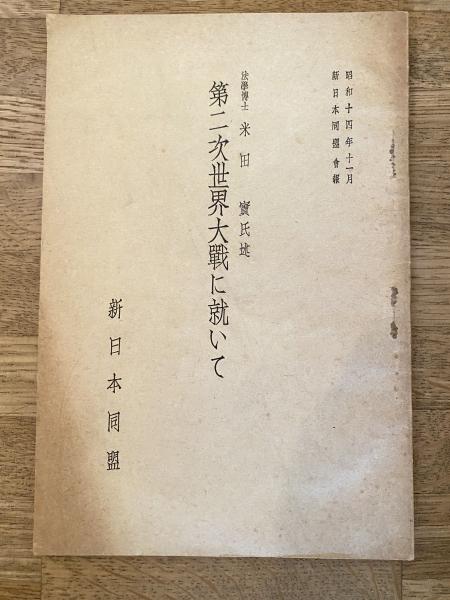 昭和十四年十一月
新日本同盟會報
法學博士 米田 實氏述
第二次世界大戰に就いて
新日本同盟